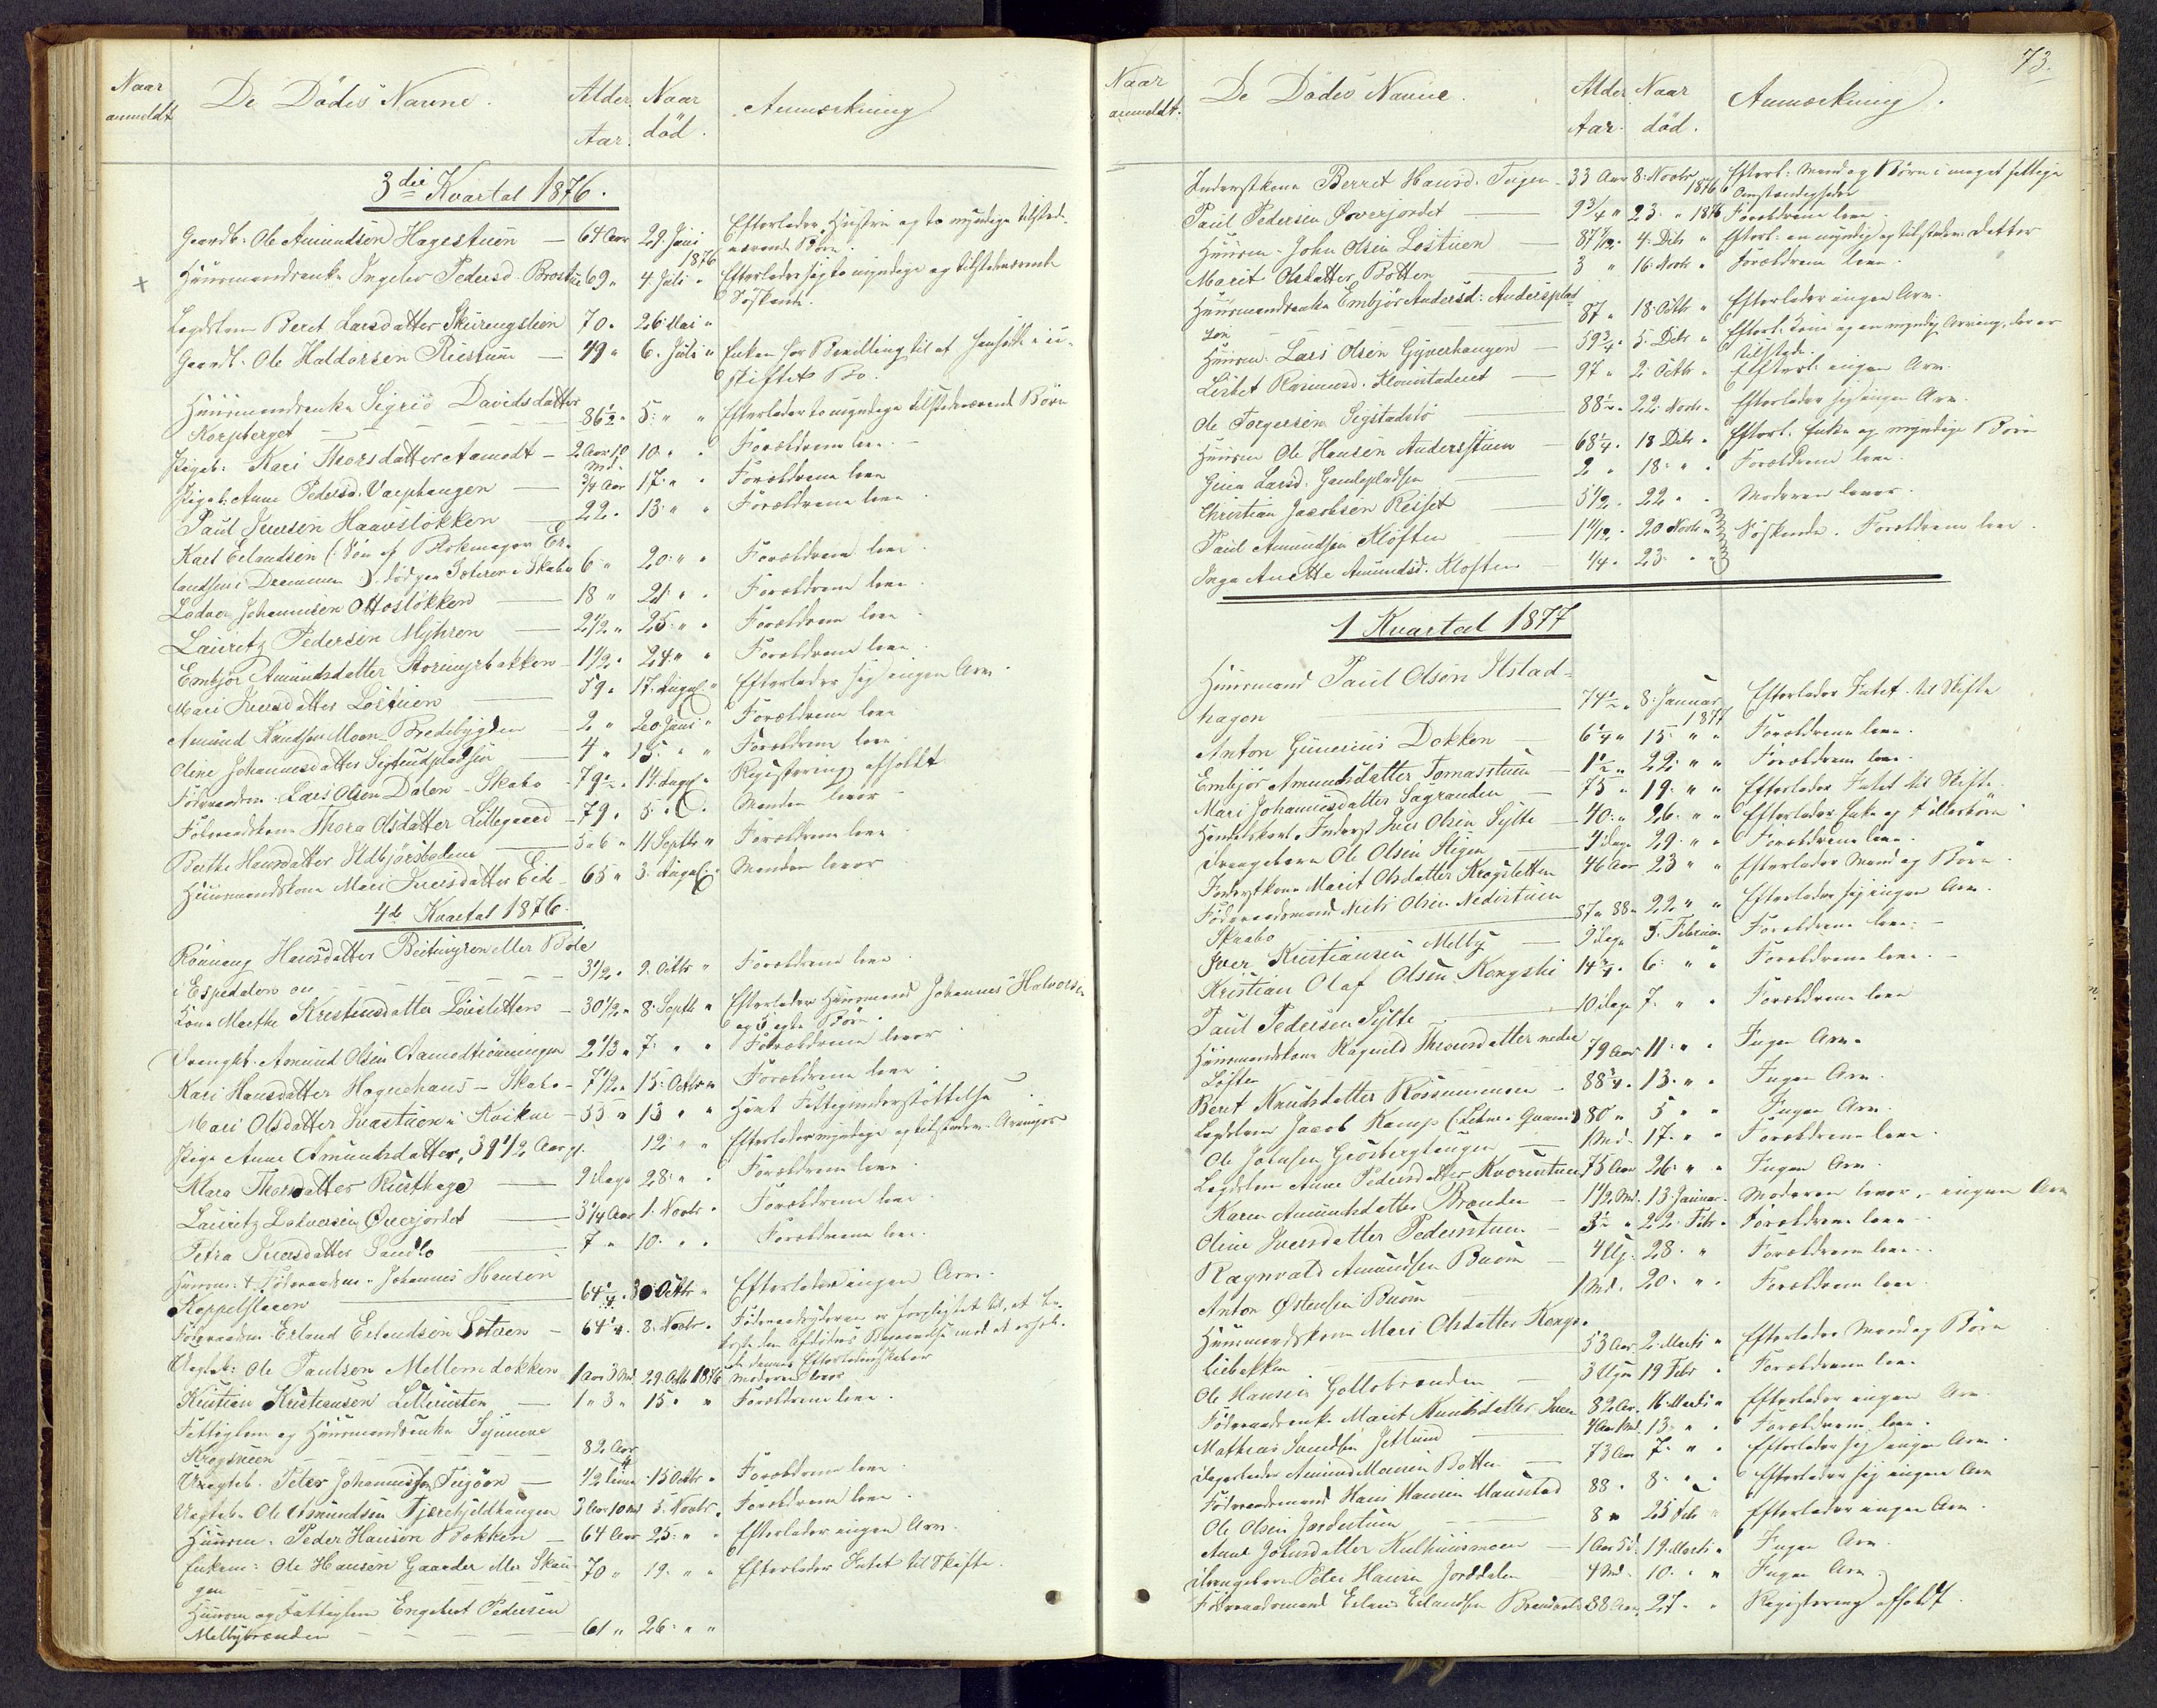 Naar
anmeldt
De Dødes Navne.
Alder
Aar.
Naar
død.
Anmærkning
3die Kvartal 1876.
Gaardb. Ole Amundsen Hagestuen — 64 Aar 29. Juni 1876 Efterlader Hustru og to myndige tilstede-
værende Børn.
Huusmandsenke Ingeler Pedersd. Brostue 69 " 4. Juli " Efterlader sig to myndige og tilstedeværende
Søskende.
Lægdslem Beret Larsdatter Skurengsleien 70 " 26 Mai "
Gaardb. Ole Haldorsen Riistuene — 49 " 6. Juli " Enken har Bevilling til at hensidde i u-
skiftet Bo.
Huusmandsenke Sigrid Davidsdatter
Korpberget 86½ " 5. " " Efterlader to myndige tilstedeværende Børn
Pigeb. Kari Thorsdatter Aamodt — 2 Aar 10 Md. 10. " " Forældrene leve. —
Pigeb. Anne Pedersd. Varphaugen — ¾ Aar 17. " " Forældrene leve
Paul Iversen Haavsløkken 22 " 13. " " Forældrene leve.
Karl Erlandsen (Søn af Blokmager Er-
landsen i Drammen) død paa Sæteren i Skabo 6 " 20. " " Forældrene leve.
Ladvor Johannesen Ottosløkken — 18 " 21. " " Forældrene leve.
Lauritz Pedersen Myhren — 2½ " 25. " " Forældrene leve
Embjør Amundsdatter Stormyrbakken — 1½ " 24. " " Forældrene leve.
Mari Iversdatter Løstuen — 59 " 17. August " Efterlader sig ingen Arv.
Amund Knudsen Moen Bredebygden — 2 " 20. Juni " Forældrene leve
Oline Johannesdatter Segtsudpladsen 4 " 15. " " Forældrene leve.
Føderaadsm. Lars Olsen Dalen — Skabo — 79½ " 14. Aug. " Registrering afholdt
Føderaadskone Thora Olsdatter Lillegaard — 79 " 5. " " Manden lever —
Berthe Hansdatter Udbjørsbødene — 5 a 6 " 11 Septbr " Forældrene leve
Huusmandskone Mari Iversdatter Eide — 65 " 3. August " Manden lever
4de Kvartal 1876.
Rønnaug Hansdatter Beitmyren eller Bole
i Espedalen 3½ " 9. Octbr " Forældrene leve.
Kone Marthe Kristensdatter Løseslettene — 30½ " 8. Septbr " Efterlader Huusmand Johannes Halvorsen
og 3 ægte Børn.
Drengeb. Amund Olsen Aamodtrønningen 2⅓ " 7. " " Forældrene lever
Kari Hansdatter Haguehaus — Skabo — 7½ " 15. Octbr " Forældrene leve.
Mari Olsdatter Ivastuen i Kvikne — 55 " 13 " " Havt Fattigunderstøttelse
Pige Anne Amundsdatter, 39½ Aar gl. 12. " " Efterlader myndige og tilstedev. Arvinger
Mara Thorsdatter Riisthage — 9 Dage 28. " " Forældrene leve.
Lauritz Ladvorsen Øverjordet — 3¼ Aar 1. Novbr " Forældrene leve.
Petra Iversdatter Sandbo 7 " 10. " " Forældrene leve.
Huusm. & Føderaadsm. Johannes Hansen
Koppelsleen 64¼ " 30. Octbr " Efterlader ingen Arv.
Føderaadsm. Erland Erlandsen Lotuen — 64¼ " 8. Novbr. Føderaadsyderen er forpligtet til, at be-
koste den Afdødes Begravelse mod at erhol-
de dennes Efterladenskaber
Uægteb. Ole Paulsen Mellemdokken 1 Aar 3 Md. 29. Octbr 1876 Moderen lever
Kristian Kristiansen Lillerusten — 1 " 3 " 15. " " Forældrene leve.
Fattiglem og Huusmandsenke Synneve
Krogsveen 82 Aar
Uægteb. Peter Johannesen Tugøen — ½ Time 15 Octbr " Forældrene leve
Uægteb. Ole Amundsen Fjerehjeldhaugen 3 Aar 10 Md 5. Novbr. Forældrene leve.
Huusm. Peder Hansen Bakken — 64 Aar 25. " " Efterlader ingen Arv.
Enkem: Ole Hansen Gaarder eller Skau-
gen 70 " 19. " " Efterlader Intet til Skifte.
Huusm. og Fattiglem Engebret Pedersen
Melbybrenden 61 " 26. " "
73.
Naar
anmeldt.
De Dødes Navne.
Alder
Aar.
Naar
død.
Anmærkning.
Inderstkone Berret Hansd. Tugen — 33 Aar 8. Novbr 1876 Efterl: Mand og Børn i meget fattige
Omstændigheder
Paul Pedersen Øverjordet — 9¾ " 23. " 1876 Forældrene leve.
Huusm. John Olsen Løstuen — 87 7/12 " 4. Decbr " Efterl: en myndig og tilstedev. Datter
Marit Olsdatter Botten — 3 " 16. Novbr " Forældrene leve.
Huusmandsenke Embjør Andersd. Andersplad-
sen 87 " 18. Octbr " Efterlader ingen Arv.
Huusm. Lars Olsen Gyverhaugen — 59¾ " 5. Decbr " Efterl: Kone og en myndig Arving, der er
tilstede.
Lisbet Rasmusd. Klomstadeiet — 97 " 2. Octbr " Efterl: ingen Arv.
Ole Torgersen Sygstadslø 88½ " 22. Novbr " Efterlader sig ingen Arv.
Huusm Ole Hansen Andersstuen — 68¼ " 13 Decbr " Efterl: Enke og myndige Børn
Guria Larsd. Gamlepladsen — 2 " 18. " " Forældrene leve.
Christian Jacobsen Reiset 5½ " 22 " " Moderen lever.
Paul Amundsen Kløften — 1 11/12 " 20 Novbr " Søskende. Forældrene leve.
Inga Anette Amundsd. Kløften — ¼ " 23. " "
1 Kvartal 1877
Huusmand Paul Olsen Ulstad-
hagen 74½ " 8. Januar 1877 Efterlader Intet til Skifte
Anton Gunerius Dokken — 6¼ " 15. " " Forældrene leve.
Embjør Amundsdatter Tomasstuen — 1½ " 22. " " Forældrene leve.
Mari Johannesdatter Sagranden — 75 " 19. " " Efterlader Intet til Skifte.
Handelskarl, Inderst Iver Olsen Sylte — 40. " 26. " " Efterlader Enke og 4 Ellebørn
Drengebarn Ole Olsen Stigen — 4 Dage 29. " " Forældrene leve.
Inderstkone Marit Olsdatter Krogsletten 46 Aar 23 " " Efterlader Mand og Børn
Føderaadsmand Niels Olsen Nedistuen
Skaabo 87 a 88 " 22 " " Efterlader sig ingen Arv.
Iver Kristiansen Melby — 9 Dage 5. Februar Forældrene leve.
Kristian Olaf Olsen Kongsli 14¾ " 6. " " Forældrene leve. —
Paul Pedersen Sylte 10 Dage 7. " " Forældrene leve
Huusmandskone Ragnild Iversdatter nedre
Løften 79 Aar 11. " " Ingen Arv.
Beret Knudsdatter Rossummoen — 88¼ " 13. " " Ingen Arv.
Lægdslem Jacob Kamp 80 " 5 " " Ingen Arv.
Ole Johnsen Grosberghaugen — 1 Md. 17. " " Forældrene leve.
Lægdslem Anne Pedersdatter Kvernstuen 75 Aar 26. " " Ingen Arv.
Karen Amundsdatter Brænden — 1½ Md. 13. Januar. Moderen lever, ingen Arv
Oline Iversdatter Pedersstuen — 3½ " 22. Febr " Forældrene leve
Ragnvald Amundsen Buom — 4 Ug. 28. " Forældrene leve.
Anton Østensen Buom 1 Md. 20. " " Forældrene leve.
Huusmandskone Mari Olsdatter Kongs-
liebakken 53 Aar 2. Marts " Efterlader Mand og Børn
Ole Hansen Gollobrænden — 3 Uger 19 Febr " Forældrene leve.
Føderaadsenke Marit Knudsdatter Sveen 82 Aar. 16. Marts " Efterlader ingen Arv.
Mathias Amundsen Jetlund 4 Aar 1 Md. 13. " " Forældrene leve.
Dagarbeider Amund Monsen Botten — 73 Aar 7. " " Efterlader sig ingen Arv.
Føderaadsmand Hans Hansen Maurstad 88 " 8. " " Efterlader sig ingen Arv
Ole Olsen Jordestuen — 8 " 25 Febr " Efterlader ingen Arv.
Anne Johnsdatter Kulhuusmoen — 1 Aar 5 d. 19. Marts " Ingen Arv.
Drengebarn Peter Hansen Jorddalen 4 Md. 10. " " Ingen Arv.
Føderaadsmand Erland Erlandsen 88 Aar 27. " " Registrering afholdt.